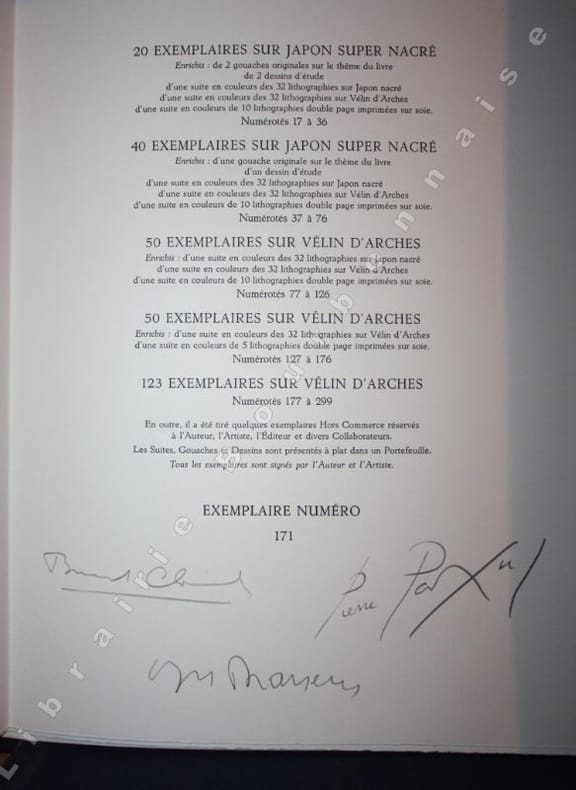 20 EXEMPLAIRES SUR JAPON SUPER NACRÉ
Enrichis : de 2 gouaches originales sur le thème du livre
de 2 dessins d'étude
d'une suite en couleurs des 32 lithographies sur Japon nacré
d'une suite en couleurs des 32 lithographies sur Vélin d'Arches
d'une suite en couleurs de 10 lithographies double page imprimées sur soie.
Numérotés 17 à 36
40 EXEMPLAIRES SUR JAPON SUPER NACRÉ
Enrichis : d'une gouache originale sur le thème du livre
d'un dessin d'étude
d'une suite en couleurs des 32 lithographies sur Japon nacré
d'une suite en couleurs des 32 lithographies sur Vélin d'Arches
d'une suite en couleurs de 10 lithographies double page imprimées sur soie.
Numérotés 37 à 76
50 EXEMPLAIRES SUR VÉLIN D'ARCHES
Enrichis : d'une suite en couleurs des 32 lithographies sur Japon nacré
d'une suite en couleurs des 32 lithographies sur Vélin d'Arches
d'une suite en couleurs de 10 lithographies double page imprimées sur soie.
Numérotés 77 à 126
50 EXEMPLAIRES SUR VÉLIN D'ARCHES
Enrichis : d'une suite en couleurs des 32 lithographies sur Vélin d'Arches
d'une suite en couleurs de 5 lithographies double page imprimées sur soie.
Numérotés 127 à 176
123 EXEMPLAIRES SUR VÉLIN D'ARCHES
Numérotés 177 à 299
En outre, il a été tiré quelques exemplaires Hors Commerce réservés
à l'Auteur, l'Artiste, l'Éditeur et divers Collaborateurs.
Les Suites, Gouaches et Dessins sont présentés à plat dans un Portefeuille.
Tous les exemplaires sont signés par l'Auteur et l'Artiste.
EXEMPLAIRE NUMÉRO
171
Pierre
Librairie Bourbonnaise